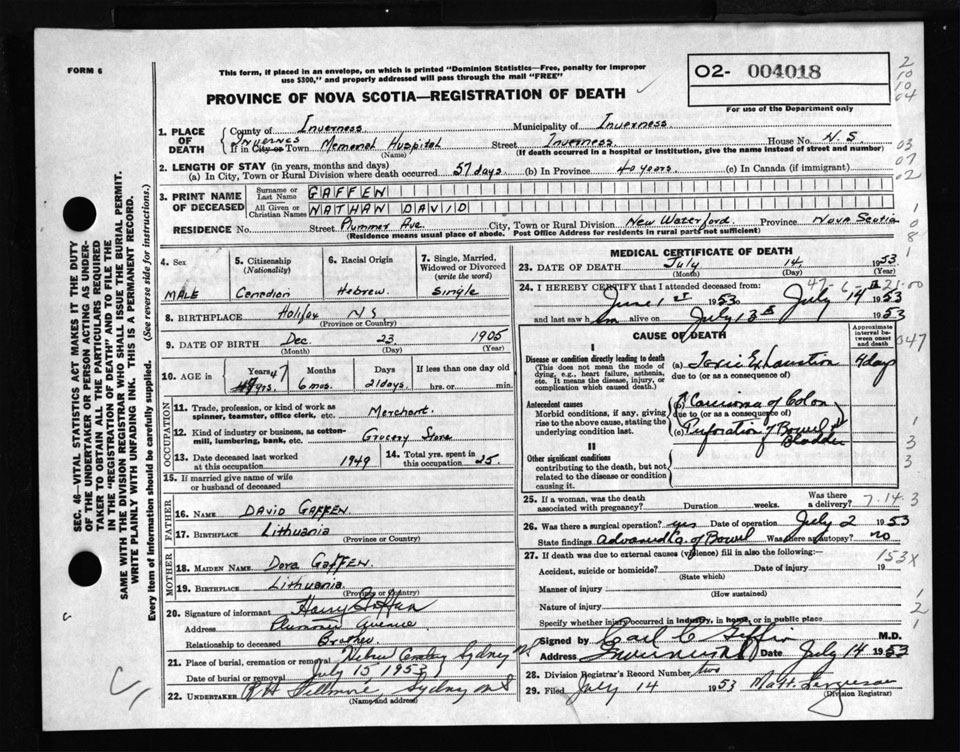 FORM 6
This form, if placed in an envelope, on which is printed "Dominion Statistics—Free, penalty for improper
use $300," and properly addressed will pass through the mail "FREE"
O2- 004018
For use of the Department only
PROVINCE OF NOVA SCOTIA—REGISTRATION OF DEATH
2
10
10
04
1. PLACE OF DEATH
County of Inverness Municipality of Inverness
If in City or Town INVERNES Memorial Hospital Street Inverness House No. N.S.
(Name) (If death occurred in a hospital or institution, give the name instead of street and number)
03
07
02
2. LENGTH OF STAY (in years, months and days)
(a) In City, Town or Rural Division where death occurred 57 days. (b) In Province 40 years. (c) In Canada (if immigrant)
3. PRINT NAME OF DECEASED
Surname or Last Name GAFFEN
All Given or Christian Names NATHAN DAVID
RESIDENCE No. Street Plummer Ave. City, Town or Rural Division New Waterford. Province Nova Scotia
(Residence means usual place of abode. Post Office Address for residents in rural parts not sufficient)
1
0
8
1
4. Sex
MALE
5. Citizenship
(Nationality)
Canadian
6. Racial Origin
Hebrew.
7. Single, Married,
Widowed or Divorced
(write the word)
Single
8. BIRTHPLACE Halifax N S
(Province or Country)
9. DATE OF BIRTH Dec. 23 1905
(Month) (Day) (Year)
10. AGE in Years 47 yrs. Months 6 mos. Days 21 days If less than one day hrs. or min.
OCCUPATION
11. Trade, profession, or kind of work as
spinner, teamster, office clerk, etc. Merchant.
12. Kind of industry or business, as cotton-
mill, lumbering, bank, etc. Grocery Store
13. Date deceased last worked
at this occupation 1949
14. Total yrs. spent in
this occupation 25.
15. If married give name of wife
or husband of deceased
FATHER
16. NAME DAVID GAFFEN.
17. BIRTHPLACE Lithuania
(Province or Country)
MOTHER
18. MAIDEN NAME Dora GAFFEN.
19. BIRTHPLACE Lithuania
(Province or Country)
20. Signature of informant Harry Gaffen
Address Plummer Avenue
Relationship to deceased Brother
21. Place of burial, cremation or removal Hebrew Cemetery Sydney NS
Date of burial or removal July 15 1953
22. UNDERTAKER Fillmore, Sydney NS
(Name and address)
MEDICAL CERTIFICATE OF DEATH
23. DATE OF DEATH July 14 1953
(Month) (Day) (Year)
47-6-21-00
24. I HEREBY CERTIFY that I attended deceased from:
June 1st 1953 to July 14th 1953
and last saw him alive on July 13th 1953
CAUSE OF DEATH
Approximate interval between onset and death
I
Disease or condition directly leading to death
(This does not mean the mode of dying, e.g., heart failure, asthenia, etc. It means the disease, injury, or complication which caused death.)
(a) Toxic Exhaustion 4 days
due to (or as a consequence of)
Antecedent causes
Morbid conditions, if any, giving rise to the above cause, stating the underlying condition last.
(b) Carcinoma of Colon
due to (or as a consequence of)
(c) Perforation of Bowel
Bladder
II
Other significant conditions
contributing to the death, but not related to the disease or condition causing it.
1
3
3
25. If a woman, was the death
associated with pregnancy? Duration weeks. Was there a delivery?
7-14-3
26. Was there a surgical operation? yes Date of operation July 2 1953
State findings Advanced Ca. of Bowel Was there an autopsy? no
27. If death was due to external causes (violence) fill in also the following:—
153X
Accident, suicide or homicide? Date of injury 19
(State which)
Manner of injury
(How sustained)
Nature of injury
Specify whether injury occurred in industry, in home, or in public place
1
2
1
Signed by Carl C Giffin M.D.
Address Inverness Date July 14 1953
28. Division Registrar's Record Number two
29. Filed July 14 1953
(Division Registrar)
SEC. 46—VITAL STATISTICS ACT MAKES IT THE DUTY
OF THE UNDERTAKER OR PERSON ACTING AS UNDER-
TAKER TO OBTAIN ALL THE PARTICULARS REQUIRED
IN THE "REGISTRATION OF DEATH" AND TO FILE THE
SAME WITH THE DIVISION REGISTRAR WHO SHALL ISSUE THE BURIAL PERMIT.
WRITE PLAINLY WITH UNFADING INK. THIS IS A PERMANENT RECORD.
Every item of information should be carefully supplied. (See reverse side for instructions.)